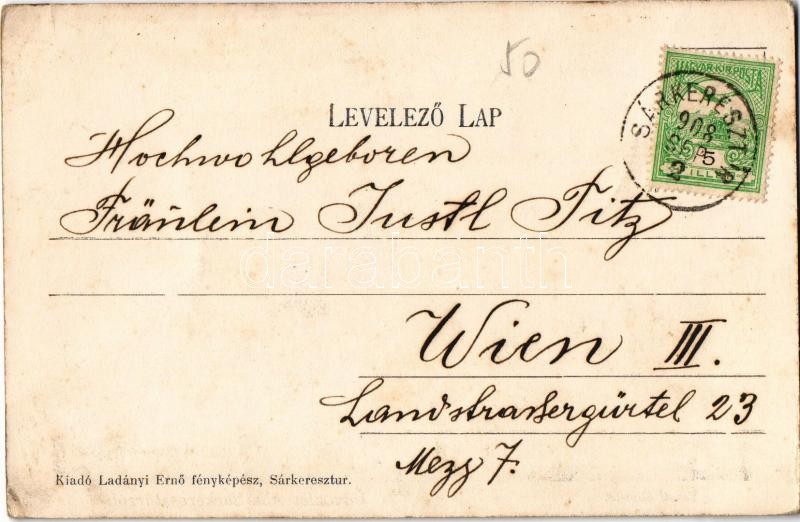 50
MAGYAR KIR. POSTA
SÁRKERESZTÚR
908
5
LEVELEZŐ LAP
Hochwohlgeboren
Fräulein Justl Fitz
darabanth
Wien III.
Landstrassergürtel 23
Mezz 7.
Kiadó Ladányi Ernő fényképész, Sárkeresztur.